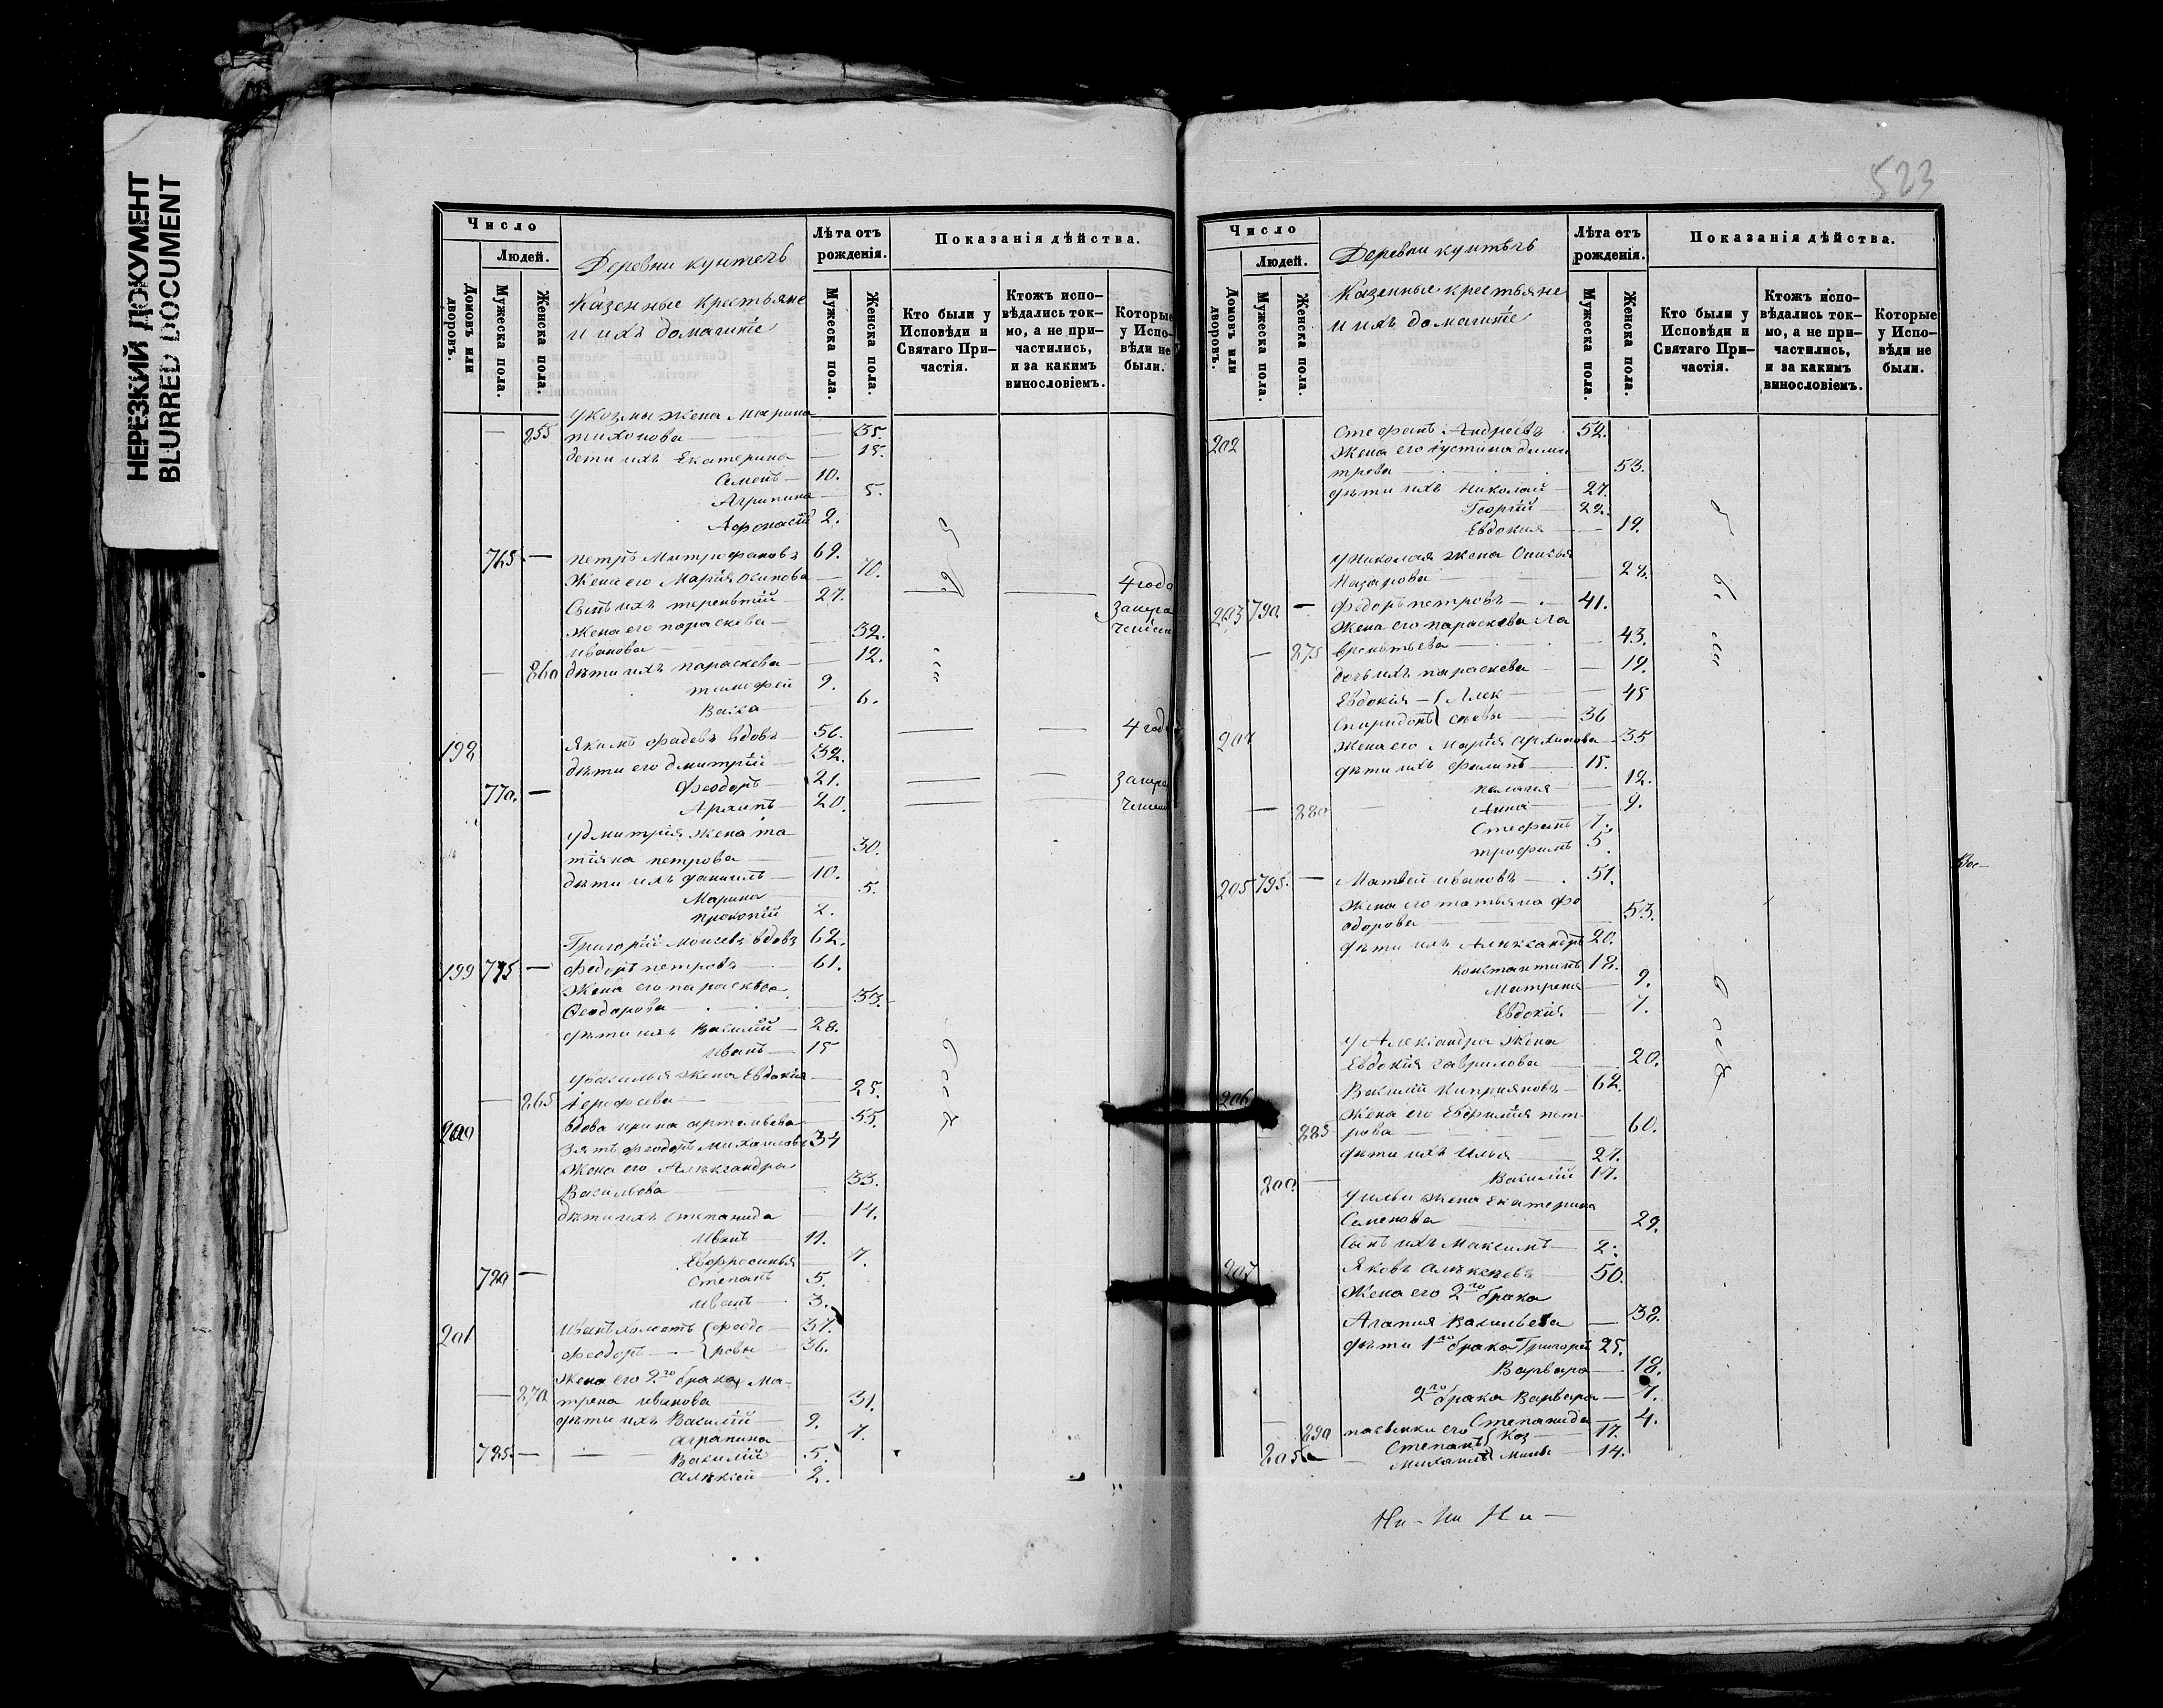 НЕРЕЗКИЙ ДОКУМЕНТ
BLURRED DOCUMENT
Число
Людей.
Домовъ или дворовъ.
Мужеска пола.
Женска пола.
Деревни кунтечь
Казенные крестьяне
и ихъ домашніе
Лѣта отъ рожденія.
Мужеска пола.
Женска пола.
Показанія дѣйства.
Кто были у Исповѣди и Святаго Причастія.
Ктожъ исповѣдались токмо, а не причастились, и за какимъ винословіемъ.
Которые у Исповѣди не были.
у козмы жена Марина
— 855 тихонова — 35.
дети ихъ Екатерина — 15.
Семенъ — 10.
Агрипина — 5.
Афонасій 2.
765 — петръ Митрофановъ 69.
Жена его Марія Осипова — 70. 4 года
Сынъ ихъ терентій — 27.
жена его параскева —
иванова — 32.
— 860 дѣти ихъ параскева — 12.
тимофей 9.
Васса — 6.
198 Якимъ фадѣевъ вдовъ 56. 4 года
дѣти его дмитрій — 32.
770. — Феодоръ — 21.
Архипъ 20.
у дмитрія жена та-
тіяна петрова — 30.
дѣти ихъ даниилъ — 10.
Марина — 5.
прокопій 2.
Григорій Моисеевъ вдовъ 62.
199 775 — федоръ петровъ — 61.
жена его параскева
Феодорова — 53.
дѣти ихъ Василій — 28.
иванъ — 15
у василья жена Евдокія
— 865 ерофеева — 25.
200 вдова ирина артемьева 55.
зять феодоръ Михаиловъ 34
жена его Александра
Васильева — 33.
дѣти ихъ степанида 14.
иванъ — 11.
Евфросинья 7.
780 — степанъ 5.
иванъ — 3.
201 иванъ холостъ { феодо- 37.
феодоръ — { ровы — 36.
жена его 2го брака Ма-
— 870 трена иванова — 31.
дѣти ихъ Василій — 9.
аграпина 7.
785. — Василій 5.
алексій 2.
523
Число
Людей.
Домовъ или дворовъ.
Мужеска пола.
Женска пола.
Деревни кунтѣчь
Казенные крестьяне
и ихъ домашніе
Лѣта отъ рожденія.
Мужеска пола.
Женска пола.
Показанія дѣйства.
Кто были у Исповѣди и Святаго Причастія.
Ктожъ исповѣдались токмо, а не причастились, и за какимъ винословіемъ.
Которые у Исповѣди не были.
202 Стефанъ Андреевъ 52.
жена его іустина дими
трева — 53.
дѣти ихъ Николай — 27.
Георгій — 22.
Евдокия — 19.
у Николая жена
Назарова — 28.
203 790. — федоръ петровъ — 41.
жена его параскева ла
— 875 врентьева — 43.
дочь ихъ параскева — 19.
Евдокія — { Алек — 45
204 Спиридонъ { сѣевы — 36
жена его Марія архипова 35
дѣти ихъ филипъ — 15.
пелагия — 12.
— 880 Анна — 9.
Стефанъ 7.
трофимъ 5.
205 795. — Матвей ивановъ — 51.
жена его татьяна фе
одорова — 53.
дѣти ихъ Александръ 20.
константинъ 18.
Матрена — 9.
Евдокія — 7.
у Александра жена
Евдокія гаврилова — 20.
206 Василій киприяновъ — 62.
жена его Евфимія пет-
885 рова — 60.
дѣти ихъ илья — 27.
800 — Василій 17.
у ильи жена екатерина
Семенова — 29.
Сынъ ихъ Максимъ — 2.
207 Яковъ алексѣевъ — 50.
жена его 2го брака
Агапия Васильева — 38.
дѣти 1го брака Григорей 25.
Варвара — 18.
2го брака Варвара — 7.
Степанида — 4.
— 890 пасынки его Степанъ { Коз — 17.
805 — Михаилъ { мины — 14.